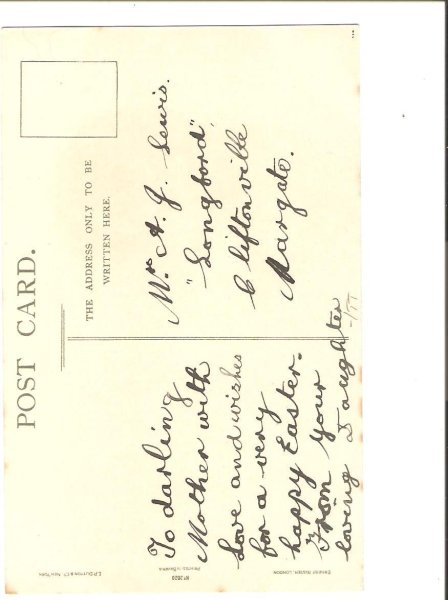 POST CARD.
THE ADDRESS ONLY TO BE
WRITTEN HERE.
To darling
Mother with
Love and wishes
for a very
happy Easter.
From your
loving Daughter
Mrs A. J. Lewis.
"Longford",
Cliftonville
Margate.
E.P. DUTTON & Co. NEW YORK
No 2620
PRINTED IN BAVARIA
ERNEST NISTER, LONDON